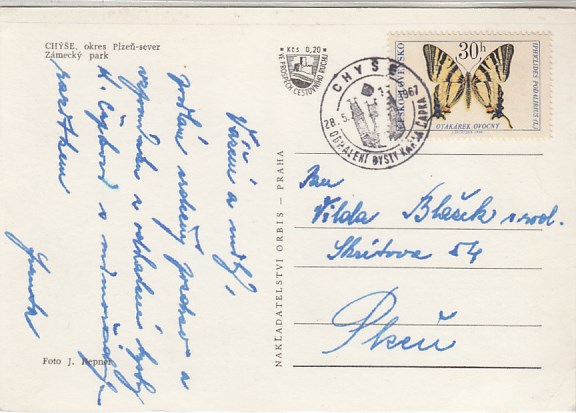 CHÝŠE, okres Plzeň-sever
Zámecký park
Vážení a milí,
posílám srdečný pozdrav a
vzpomínku z odhalení bysty
K. Čapkovi s mimořádným
razítkem
Foto J. Repner
NAKLADATELSTVÍ ORBIS — PRAHA
Kčs 0,20
VE PROSPĚCH CESTOVNÍHO RUCHU
CHYŠE
28.5.1967
ODHALENÍ BYSTY KARLA ČAPKA
ČESKOSLOVENSKO
30h
IPHICLIDES PODALIRIUS (L.)
OTAKÁREK OVOCNÝ
Pan
Vilda Blažek s rod.
Skrétova 54
Plzeň